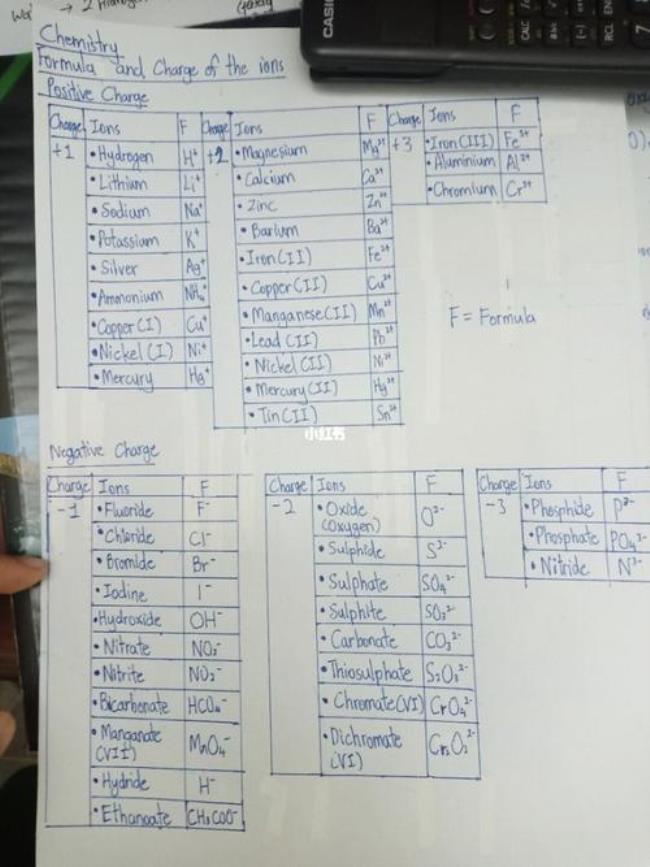 Chemistry
Formula and Charge of the ions
Positive Charge
Charge Ions F
+1 • Hydrogen H⁺
• Lithium Li⁺
• Sodium Na⁺
• Potassium K⁺
• Silver Ag⁺
• Ammonium NH₄⁺
• Copper(I) Cu⁺
• Nickel(I) Ni⁺
• Mercury Hg⁺
Charge Ions F
+2 • Magnesium Mg²⁺
• Calcium Ca²⁺
• Zinc Zn²⁺
• Barium Ba²⁺
• Iron(II) Fe²⁺
• Copper(II) Cu²⁺
• Manganese(II) Mn²⁺
• Lead(II) Pb²⁺
• Nickel(II) Ni²⁺
• Mercury(II) Hg²⁺
• Tin(II) Sn²⁺
Charge Ions F
+3 • Iron(III) Fe³⁺
• Aluminium Al³⁺
• Chromium Cr³⁺
F = Formula
小红书
Negative Charge
Charge Ions F
-1 • Fluoride F⁻
• Chloride Cl⁻
• Bromide Br⁻
• Iodine I⁻
• Hydroxide OH⁻
• Nitrate NO₃⁻
• Nitrite NO₂⁻
• Bicarbonate
• Manganate (VII) MnO₄⁻
• Hydride H⁻
• Ethanoate CH₃COO⁻
Charge Ions F
-2 • Oxide (Oxygen) O²⁻
• Sulphide S²⁻
• Sulphate SO₄²⁻
• Sulphite SO₃²⁻
• Carbonate CO₃²⁻
• Thiosulphate S₂O₃²⁻
• Chromate(VI) CrO₄²⁻
• Dichromate (VI)
Charge Ions F
-3 • Phosphide P³⁻
• Phosphate PO₄³⁻
• Nitride N³⁻
CASIO
CALC
RCL